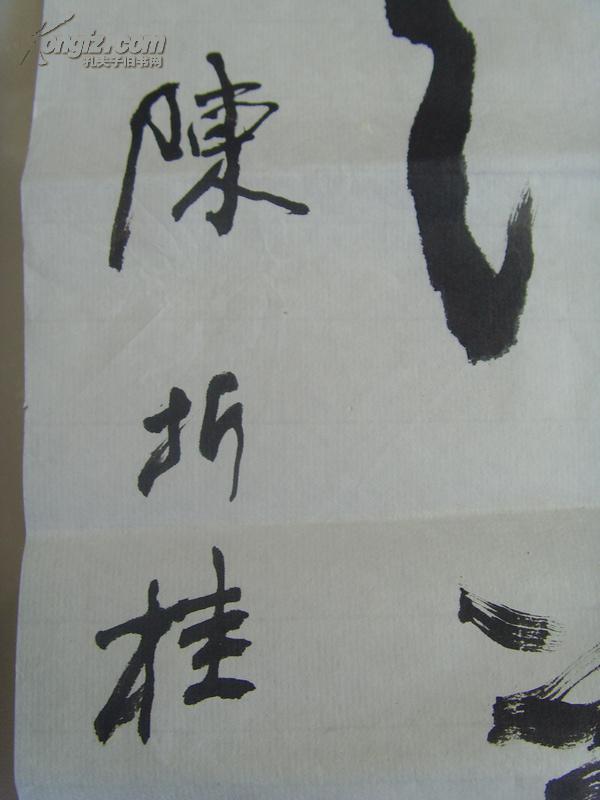 Kongfz.com
孔夫子旧书网
陳折桂